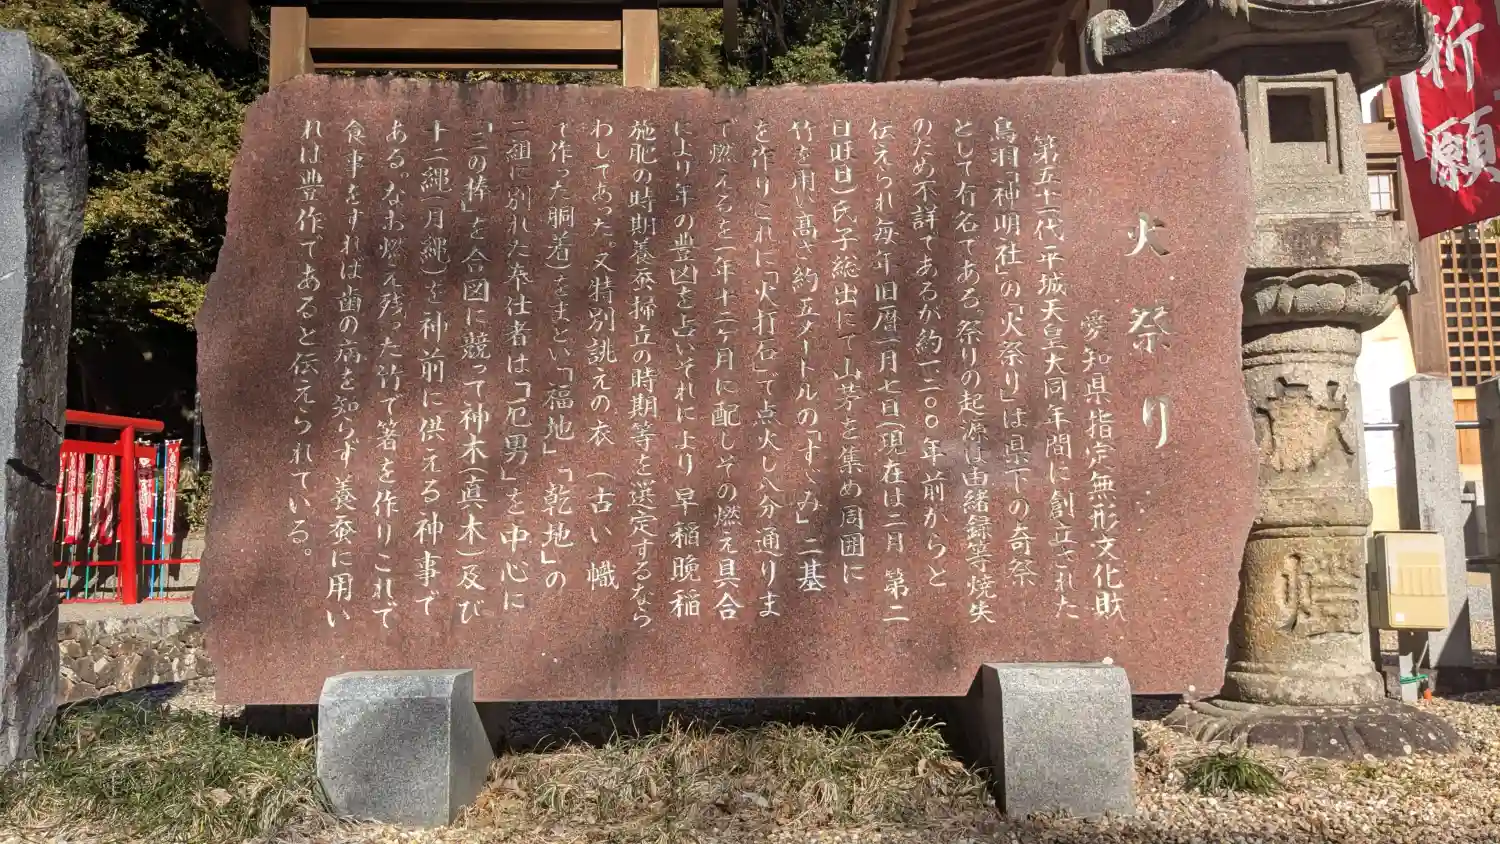 火祭り
愛知県指定無形文化財
第五十一代平城天皇大同年間に創立された
鳥羽「神明社」の「火祭り」は県下の奇祭
として有名である。祭りの起源は由緒録等焼失
のため不詳であるが約一二〇〇年前からと
伝えられ毎年旧暦一月七日(現在は二月 第二
日曜日)氏子総出にて山茅を集め周囲に
竹を用い高さ約五メートルの「すゞみ」二基
を作りこれに「火打石」で点火し八分通りま
で燃えるを一年十二ヶ月に配しその燃え具合
により年の豊凶を占いそれにより早稲晩稲
施肥の時期養蚕掃立の時期等を選定するなら
わしてあった。又特別誂えの衣 (古い幟
で作った胴着)をまとい「福地」「乾地」の
二組に別れた奉仕者は「厄男」を中心に
「三の棒」を合図に競って神木(真木)及び
十二縄(月縄)を神前に供える神事で
ある。なお燃え残った竹で箸を作りこれで
食事をすれば歯の病を知らず養蚕に用い
れは豊作であると伝えられている。
祈願